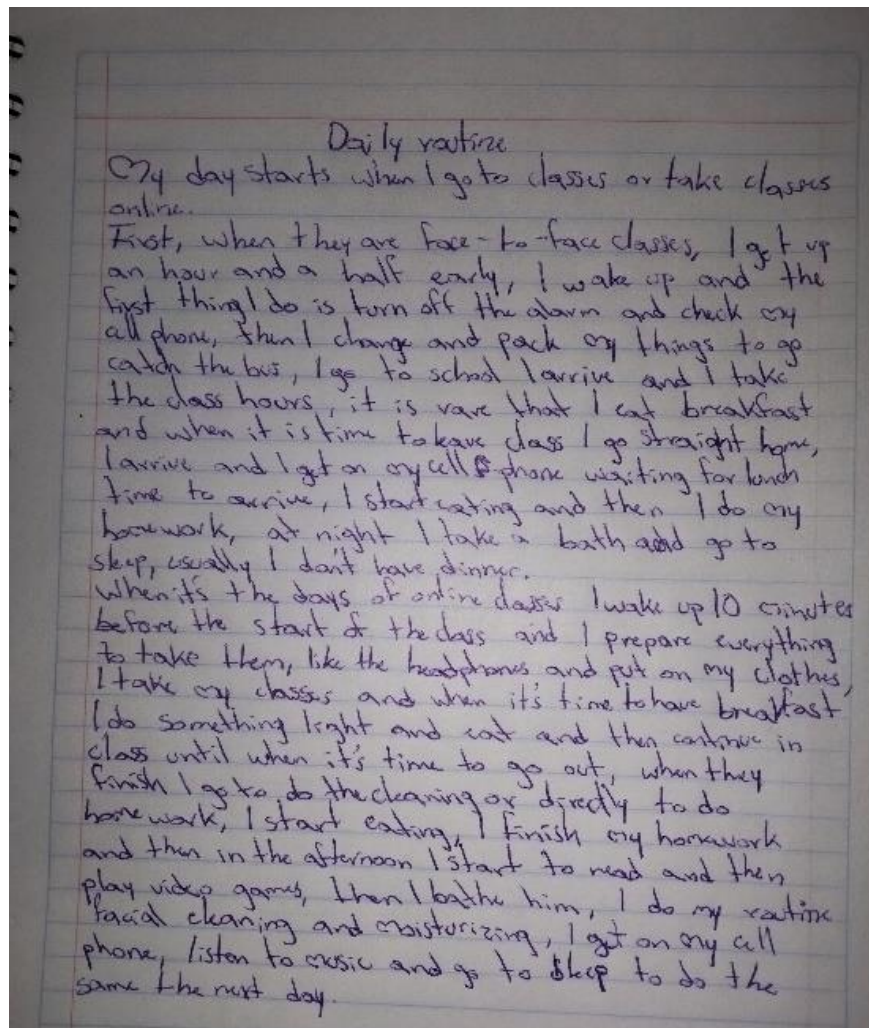 Daily routine
My day starts when I go to classes or take classes
online.
First, when they are face-to-face classes, I get up
an hour and a half early, I wake up and the
first thing I do is turn off the alarm and check my
cell phone, then I change and pack my things to go
catch the bus, I go to school I arrive and I take
the class hours, it is rare that I eat breakfast
and when it is time to leave class I go straight home,
I arrive and I get on my cell phone waiting for lunch
time to arrive, I start eating and then I do my
homework, at night I take a bath and go to
sleep, usually I don't have dinner.
When it's the days of online classes I wake up 10 minutes
before the start of the class and I prepare everything
to take them, like the headphones and put on my clothes,
I take my classes and when it's time to have breakfast
I do something light and eat and then continue in
class until when it's time to go out, when they
finish I go to do the cleaning or directly to do
homework, I start eating, I finish my homework
and then in the afternoon I start to read and then
play video games, then I bathe him, I do my routine
facial cleaning and moisturizing, I get on my cell
phone, listen to music and go to sleep to do the
same the next day.